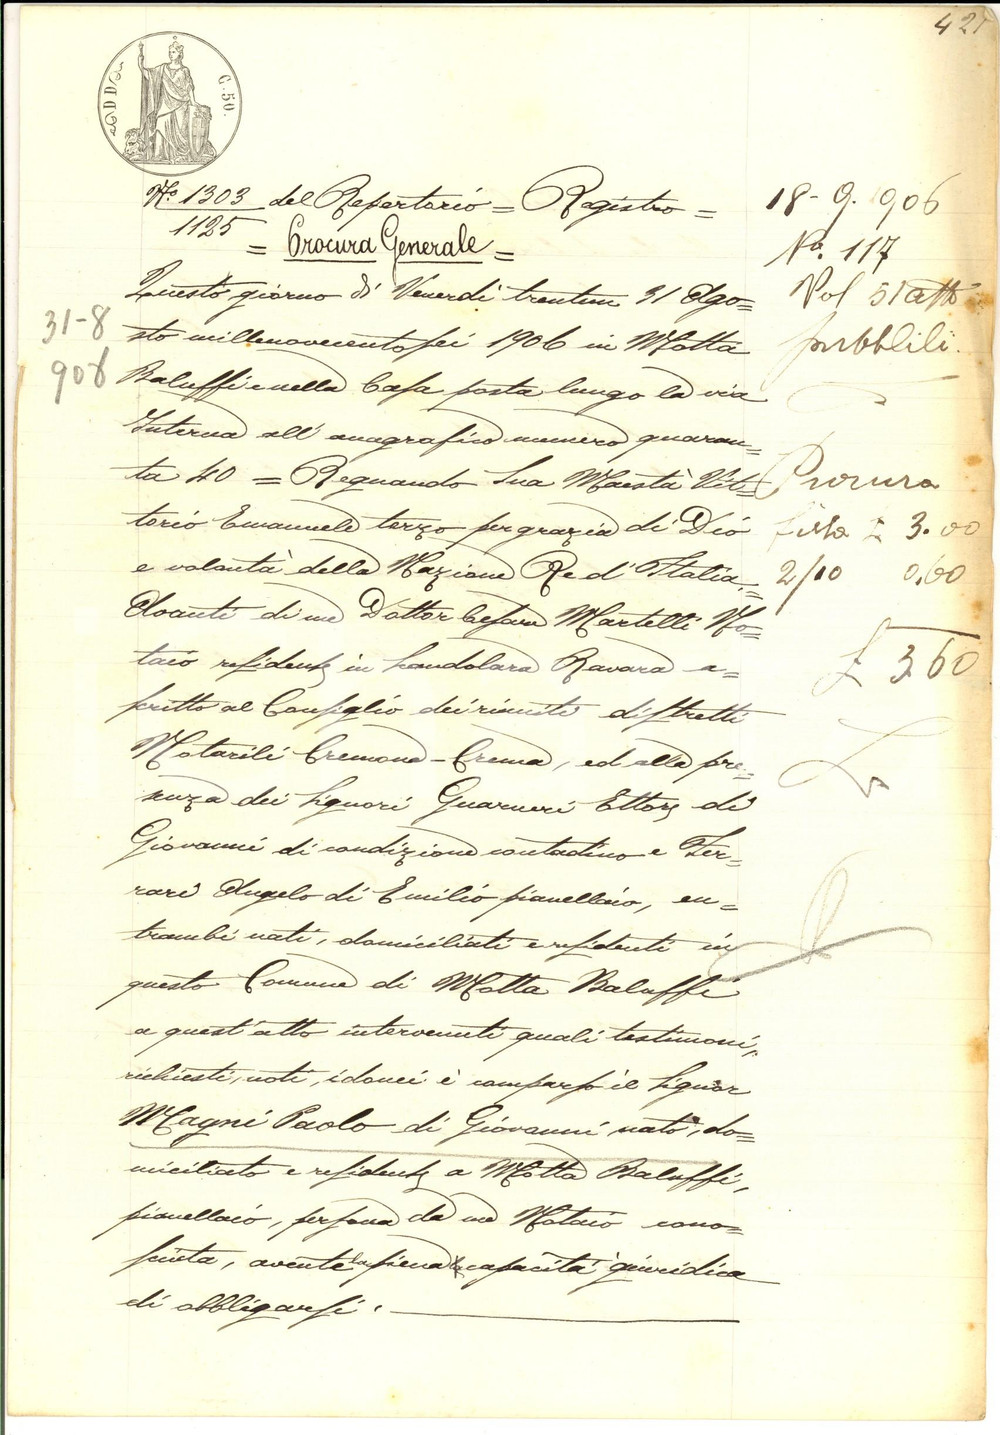 421
C. 50.
No. 1303 del Repertorio = Registro =
1125
= Procura Generale =
Questo giorno di Venerdì trentun 31 Ago=
sto millenovecentosei 1906 in Motta
Baluffi e nella Casa posta lungo la via
Interna all'anagrafico numero quaran=
ta 40 = Regnando Sua Maestà Vit=
torio Emanuele terzo per grazia di Dio
e volontà della Nazione Re d'Italia.=
Avanti di me Dottor Cesare Martelli No=
taio residente in Scandolara Ravara a=
scritto al Consiglio dei riuniti distretti
Notarili Cremona-Crema, ed alla pre=
senza dei signori Guarneri Ettore di
Giovanni di condizione contadino e Fer=
rari Angelo di Emilio pianellaio, en=
trambi nati, domiciliati e residenti in
questo Comune di Motta Baluffi
a quest'atto intervenuti quali testimoni,
richiesti, noti, idonei è comparso il signor
Magni Paolo di Giovanni nato, do=
miciliato e residente a Motta Baluffi,
pianellaio, persona da me Notaio cono=
sciuta, avente la piena capacità giuridica
di obbligarsi.
31-8
906
18-9. 906
No. 117
Vol 51 atti
pubblici.
Procura
fissa £ 3.00
2/10 0.60
£ 3.60